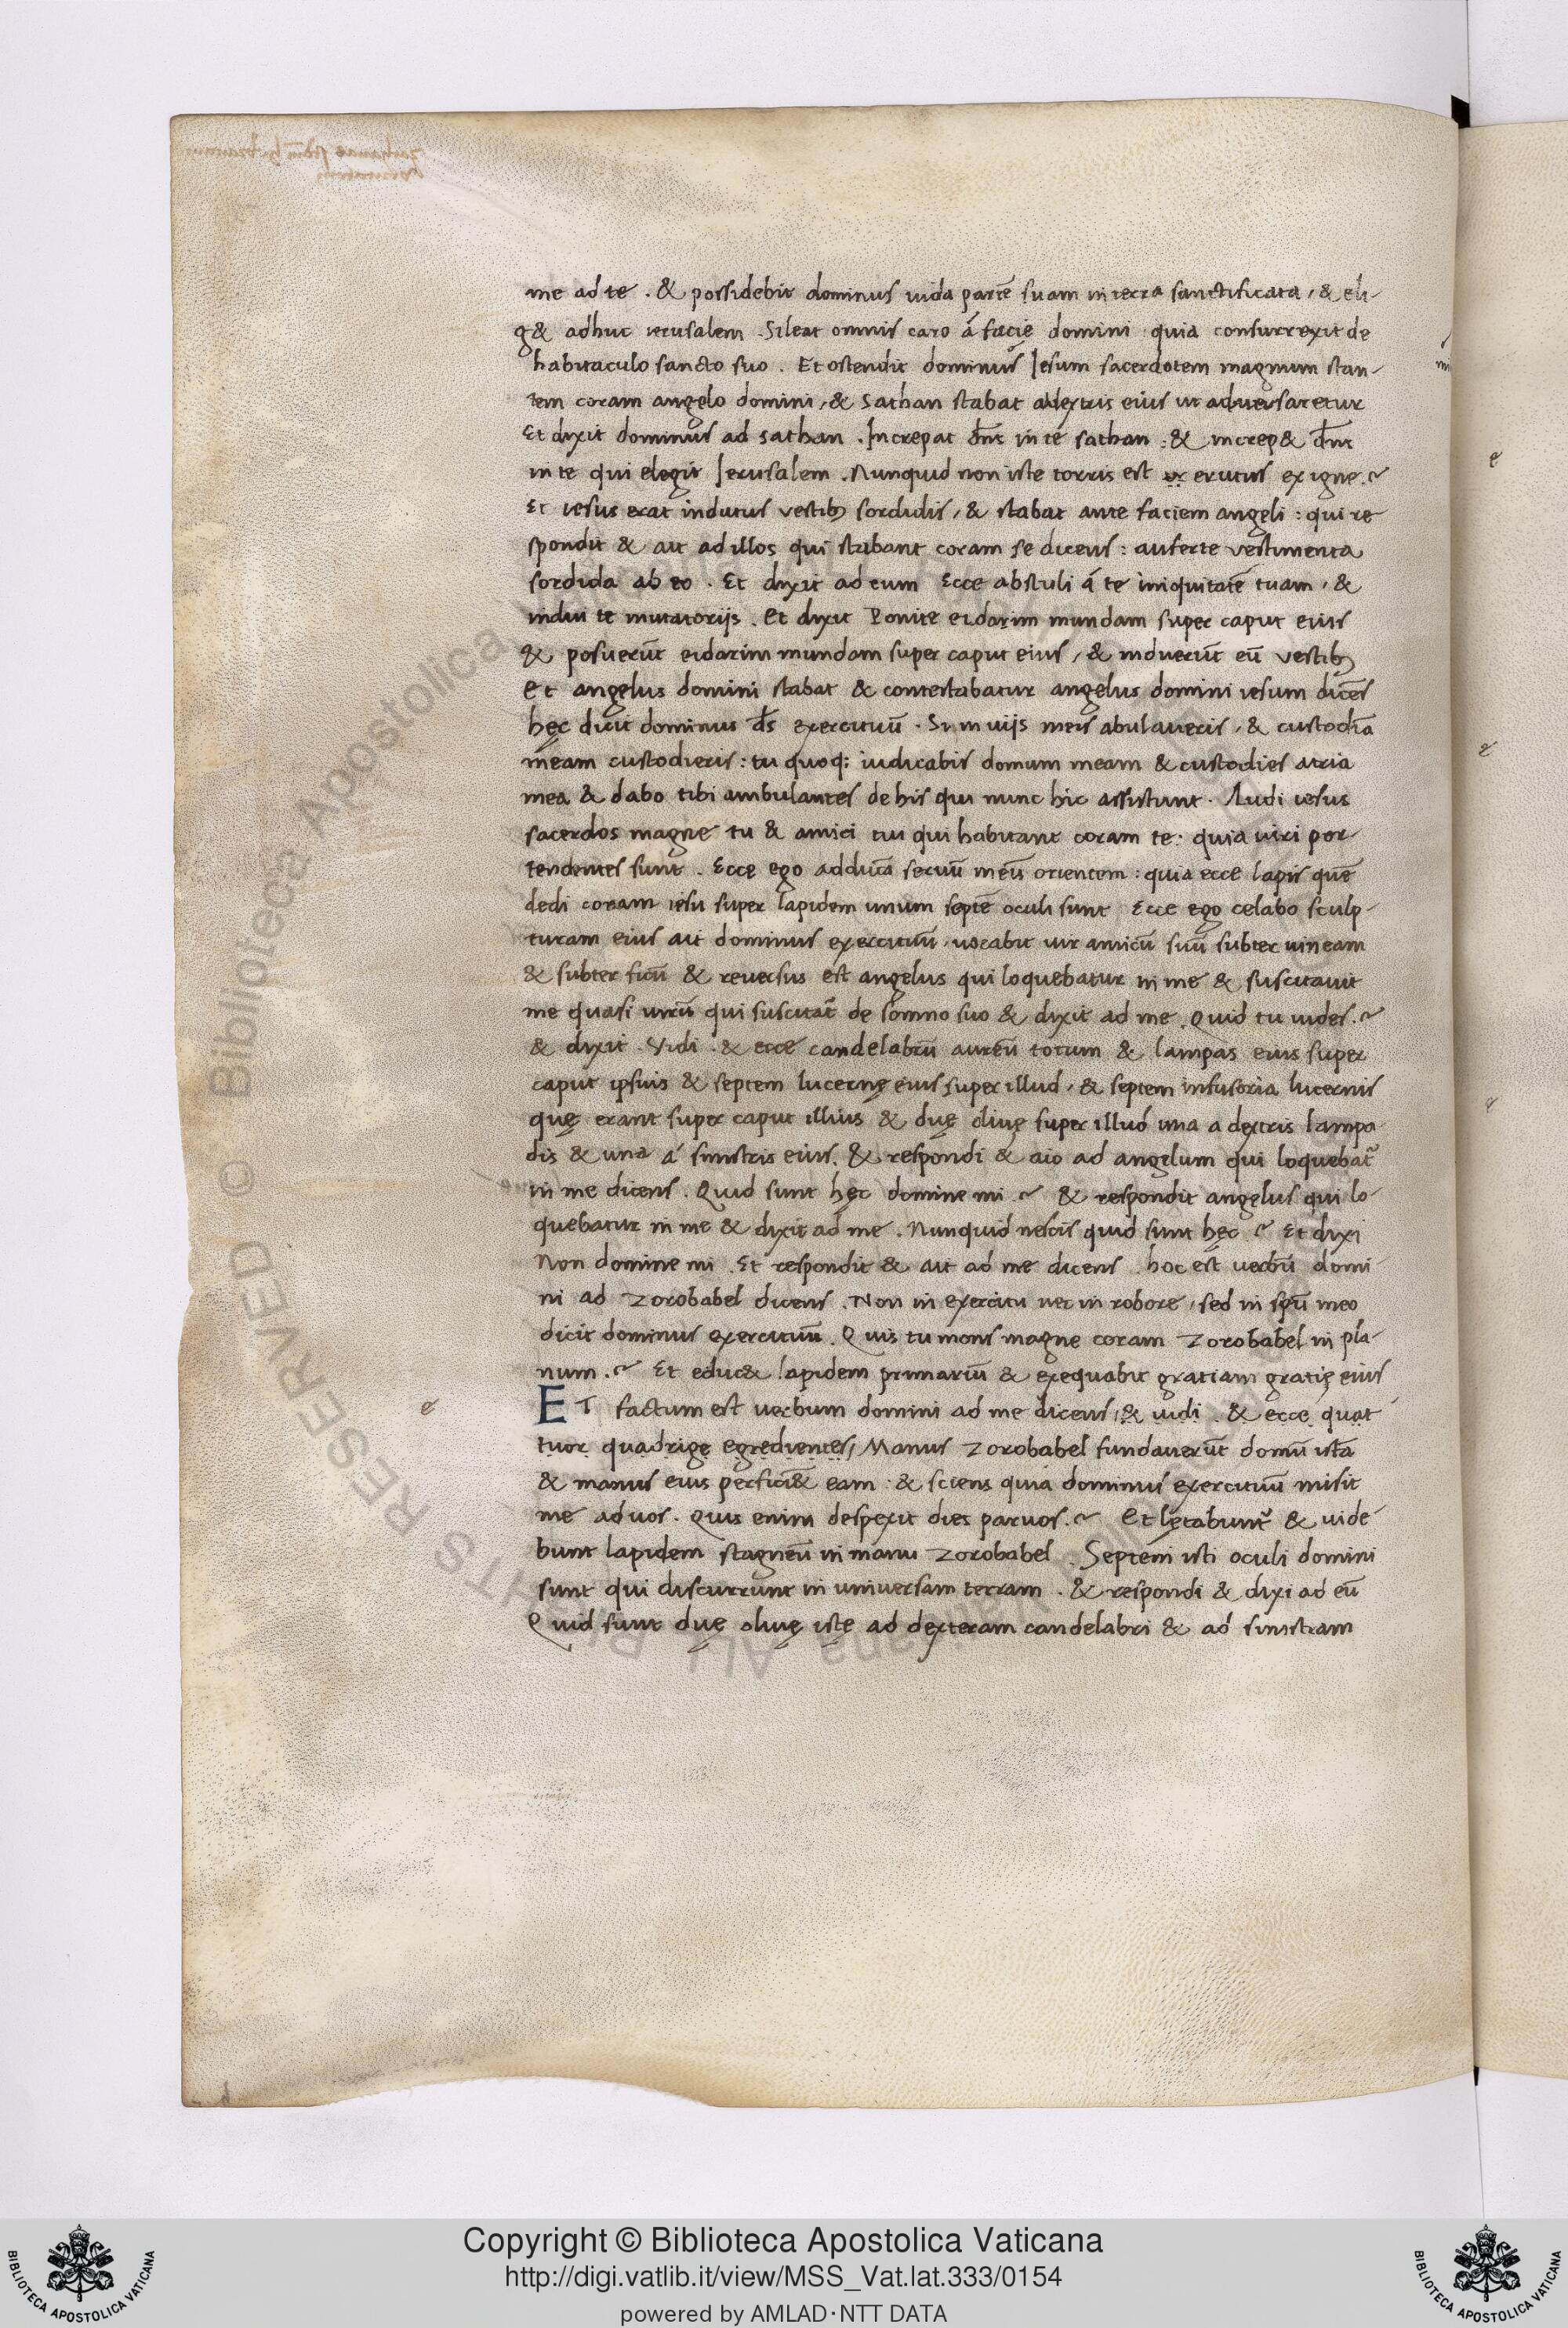 me ad te . & possidebit dominus iuda partē suam in terra sanctificata, & eli-
g& adhuc ierusalem . Sileat omnis caro á facie domini quia consurrexit de
habitaculo sancto suo . Et ostendit dominus Iesum sacerdotem magnum stan-
tem coram angelo domini, & Sathan stabat a dextris eius ut adversaretur
Et dixit dominus ad sathan . Increpat dn̄s in te sathan : & increp& dn̄s
in te qui elegit Ierusalem . Nunquid non iste torris est erutus ex igne.~
Et iesus erat indutus vestibꝫ sordidis, & stabat ante faciem angeli : qui re
spondit & ait ad illos qui stabant coram se dicens : auferte vestimenta
sordida ab eo . Et dixit ad eum Ecce abstuli á te iniquitatē tuam, &
indui te mutatorijs . Et dixit Ponite cidarim mundam super caput eius
& posuerūt cidarim mundam super caput eius, & induerūt eū vestibꝫ
Et angelus domini stabat & contestabatur angelus domini iesum dicēs
hęc dicit dominus ds̄ exercituū . Si in uijs meis abulaueris, & custodiā
meam custodieris : tu quoq; iudicabis domum meam & custodies atria
mea & dabo tibi ambulantes de his qui nunc hic assistunt . Audi iesus
sacerdos magne tu & amici tui qui habitant coram te : quia uiri por-
tendentes sunt . Ecce ego adducā seruū meū orientem : quia ecce lapis quē
dedi coram iesu super lapidem unum septē oculi sunt Ecce ego celabo sculp-
turam eius ait dominus exercituū, uocabit uir amicū suū subter uineam
& subter ficū & reuersus est angelus qui loquebatur in me & suscitauit
me quasi uirū qui suscitat̄ de somno suo & dixit ad me . Quid tu uides.~
& dixit . Vidi . & ecce candelabrū aureū totum & lampas eius super
caput ipsius & septem lucernę eius super illud, & septem infusoria lucernis
quę erant super caput illius & duę oliuę super illud una a dextris lampa
dis & una á sinistris eius. & respondi & aio ad angelum qui loquebat̄
in me dicens . Quid sunt hęc domine mi .~ & respondit angelus qui lo-
quebatur in me & dixit ad me . Nunquid nescis quid sunt hęc .~ Et dixi
Non domine mi . Et respondit & ait ad me dicens . hoc est uerbū domi-
ni ad Zorobabel dicens . Non in exercitu nec in robore, sed in spū meo
dicit dominus exercituū . Quis tu mons magne coram Zorobabel in pla-
num .~ Et educ& lapidem primariū & exequabit gratiam gratię eius
e ET factum est uerbum domini ad me dicens, & uidi . & ecce quat
tuor quadrigę egredientes, Manus Zorobabel fundauerūt domū istā
& manus eius perfici& eam : & sciens quia dominus exercituū misit
me ad uos . Quis enim despexit dies paruos .~ Et lętabunt̄ & uide
bunt lapidem stagneū in manu Zorobabel . Septem isti oculi domini
sunt qui discurrunt in uniuersam terram . & respondi & dixi ad eū
Quid sunt duę oliuę istę ad dexteram candelabri & ad sinistram
e
e
e
© Biblioteca Apostolica Vaticana ALL RIGHTS RESERVED
Copyright © Biblioteca Apostolica Vaticana
http://digi.vatlib.it/view/MSS_Vat.lat.333/0154
powered by AMLAD·NTT DATA
BIBLIOTECA APOSTOLICA VATICANA
BIBLIOTECA APOSTOLICA VATICANA